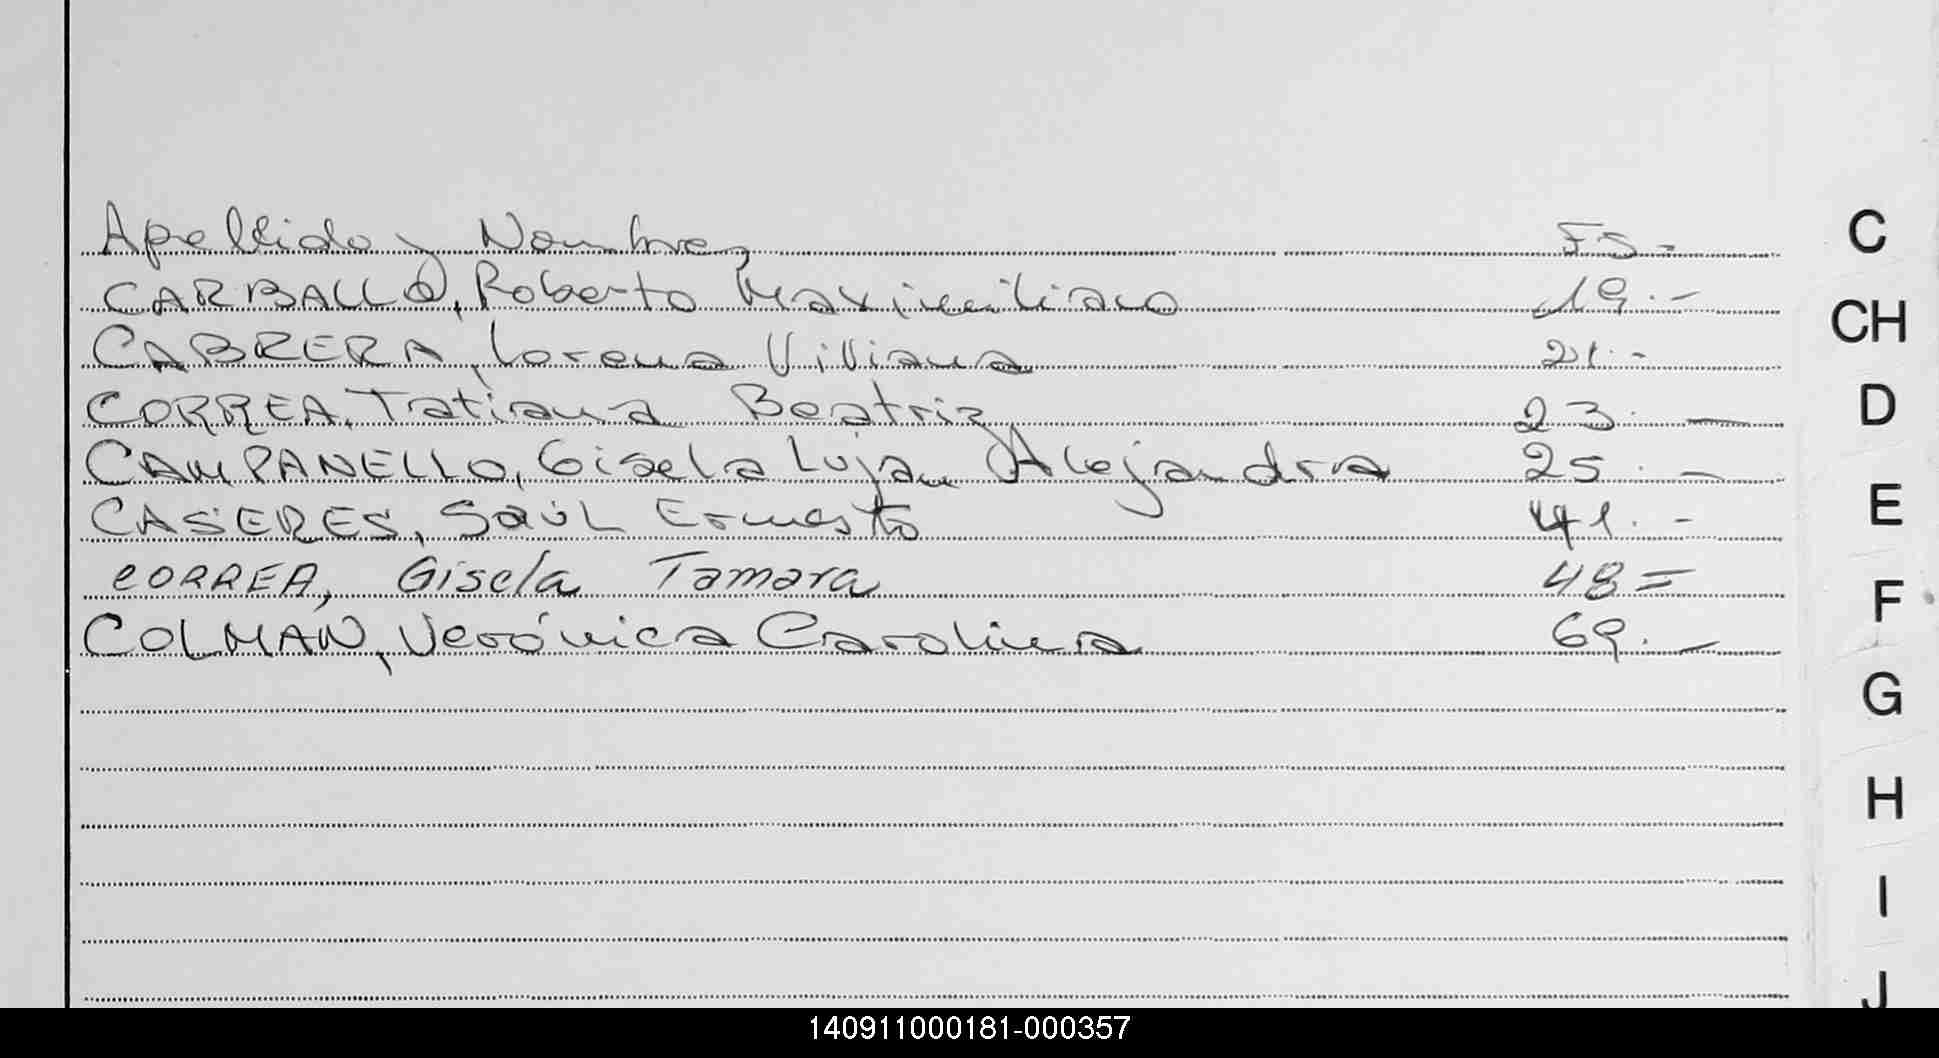 Apellido y Nombres FS.-
CARBALLO, Roberto Maximiliano 19.-
CABRERA, Lorena Viviana 21.-
CORREA, Tatiana Beatriz 23.-
CAMPANELLO, Gisela Lujan Alejandra 25.-
CASERES, Saúl Ernesto 41.-
CORREA, Gisela Tamara 48=
COLMAN, Verónica Carolina 69.-
C
CH
D
E
F
G
H
I
J
140911000181-000357